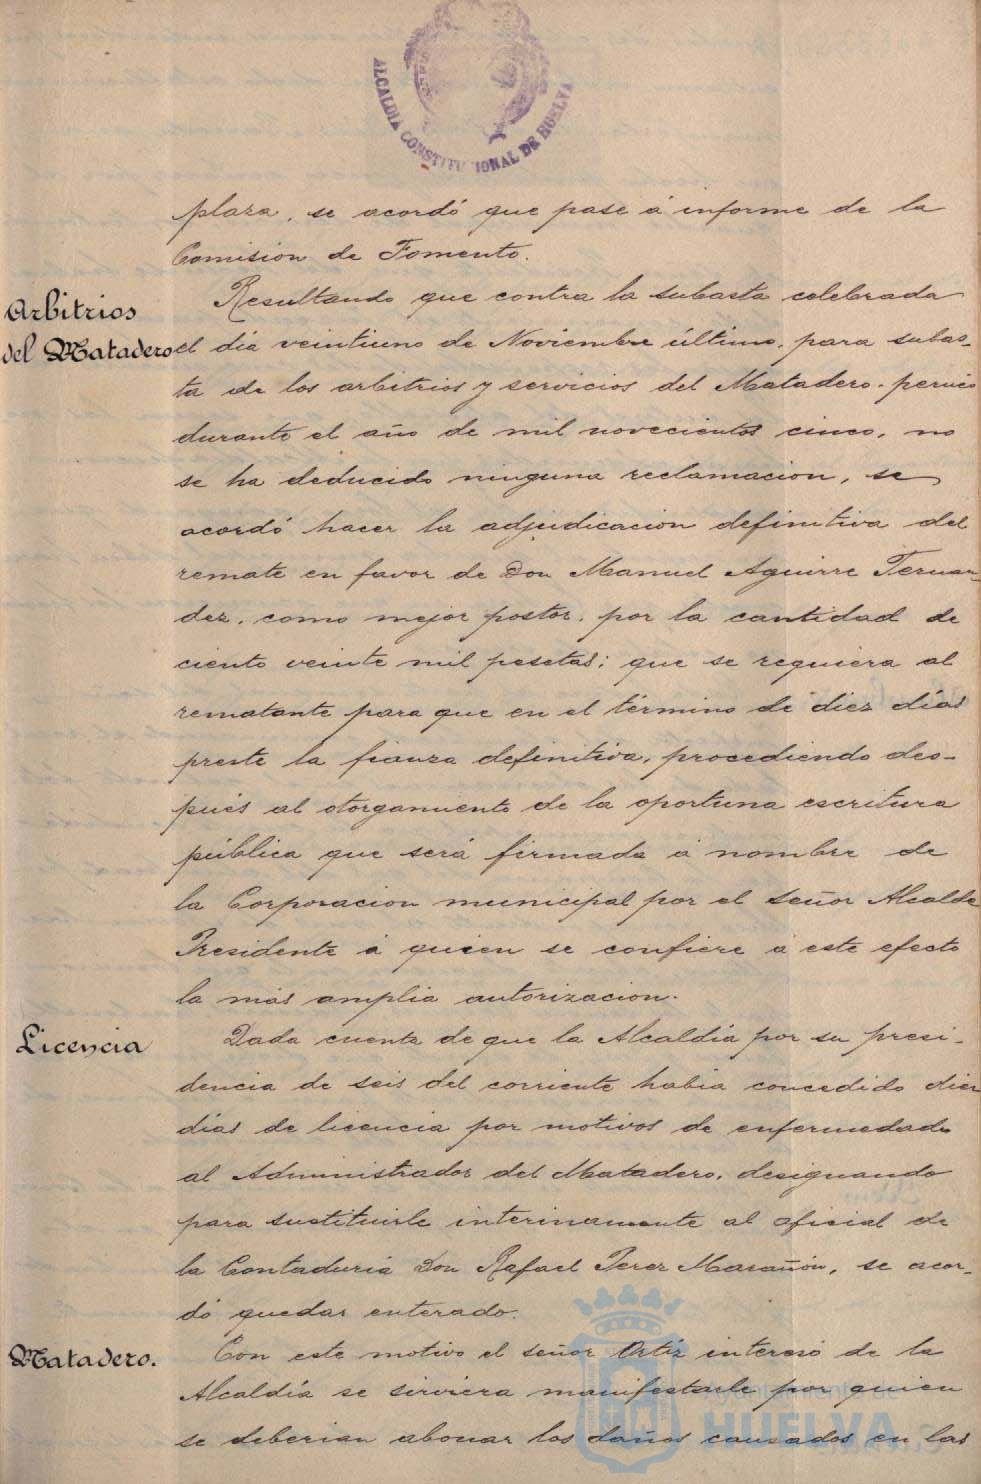 ALCALDIA CONSTITUCIONAL DE HUELVA
plaza, se acordó que pase á informe de la
Comision de Fomento.
Arbitrios
del Matadero
Resultando que contra la subasta celebrada
el dia veintiuno de Noviembre último, para subas-
ta de los arbitrios y servicios del Matadero
durante el año de mil novecientos cinco, no
se ha deducido ninguna reclamacion, se
acordó hacer la adjudicacion definitiva del
remate en favor de Don Manuel Aguirre Fernan-
dez, como mejor postor, por la cantidad de
ciento veinte mil pesetas; que se requiera al
rematante para que en el término de diez dias
preste la fianza definitiva, procediendo des-
pués al otorgamiento de la oportuna escritura
pública que será firmada á nombre de
la Corporacion municipal por el señor Alcalde
Presidente á quien se confiere á este efecto
la más amplia autorizacion.
Licencia
Dada cuenta de que la Alcaldía por su presi-
dencia de seis del corriente habia concedido diez
dias de licencia por motivos de enfermedad
al Administrador del Matadero, designando
para sustituirle interinamente al oficial de
la Contaduria Don Rafael Perez Marañón, se acor-
dó quedar enterado.
Matadero.
Con este motivo el señor Ortiz interesó de la
Alcaldía se sirviera manifestarle por quien
se deberian abonar los daños causados en las
Ayuntamiento de
HUELVA